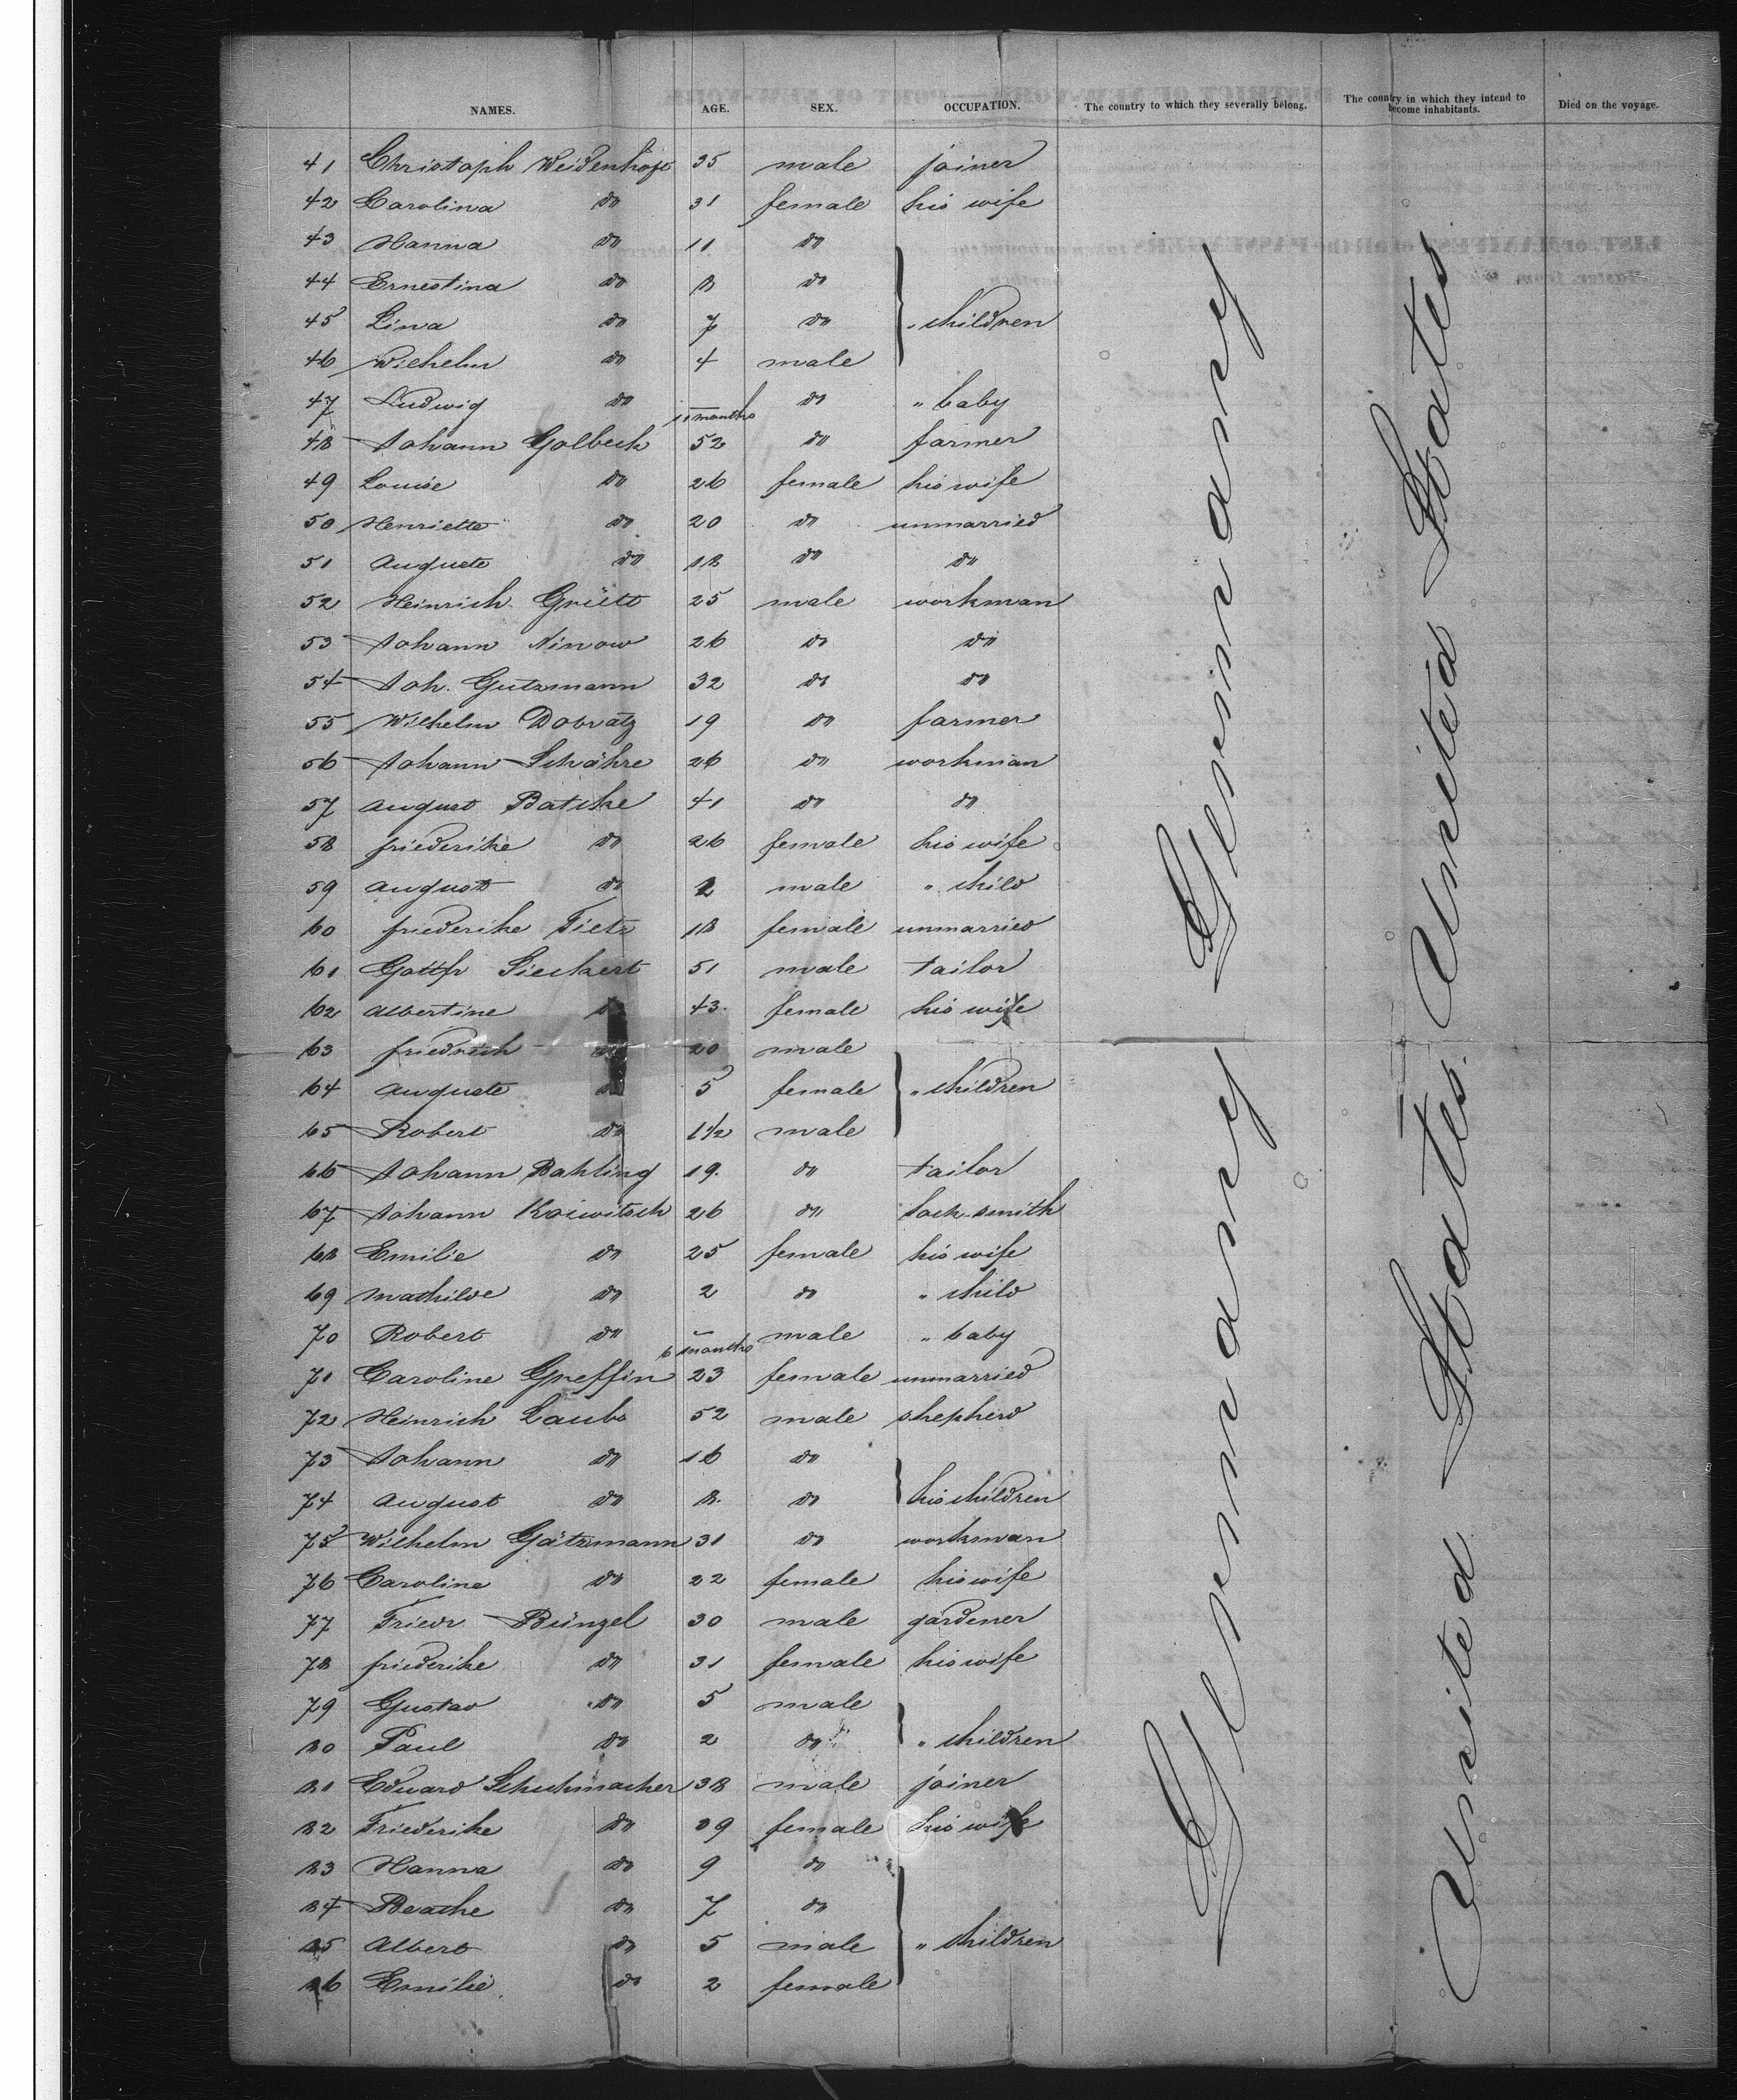 NAMES. AGE. SEX. OCCUPATION. The country to which they severally belong. The country in which they intend to become inhabitants. Died on the voyage.
41 Christoph Weidenhöft 35 male joiner
42 Carolina do 31 female his wife
43 Hanna do 11 do
44 Ernestina do 8 do
45 Lina do 7 do " children
46 Wilhelm do 4 male
47 Ludwig do 11 months do " baby
48 Johann Golbeck 52 do farmer
49 Louise do 26 female his wife
50 Henriette do 20 do unmarried
51 Auguste do 18 do do
52 Heinrich 25 male workman
53 Johann Ninow 26 do do
54 Joh. Gutzmann 32 do do
55 Wilhelm Dobratz 19 do farmer
56 Johann 26 do workman
57 August Batcke 41 do do
58 friederike do 26 female his wife
59 August do 2 male " child
60 friederike Tietz 18 female unmarried
61 Gottfr Sieckert 51 male tailor
62 Albertine do 43 female his wife
63 friedrich do 20 male
64 Auguste do 5 female " children
65 Robert do 1 1/2 male
66 Johann Bahling 19. do tailor
67 Johann Koiwitsch 26 do lock-smith
68 Emilie do 25 female his wife
69 Mathilde do 2 do " child
70 Robert do 6 months male " baby
71 Caroline Greffin 23 female unmarried
72 Heinrich Laube 52 male shepherd
73 Johann do 16 do
74 August do 8. do his children
75 Wilhelm Gätzmann 31 do workman
76 Caroline do 22 female his wife
77 Friedr Bünzel 30 male gardener
78 friederike do 31 female his wife
79 Gustav do 5 male
80 Paul do 2 do " children
81 Eduard Schuhmacher 38 male joiner
82 Friederike do 39 female his wife
83 Hanna do 9 do
84 Beathe do 7 do
85 Albert do 5 male " children
86 Emilie do 2 female
Germany Germany
United States. United States